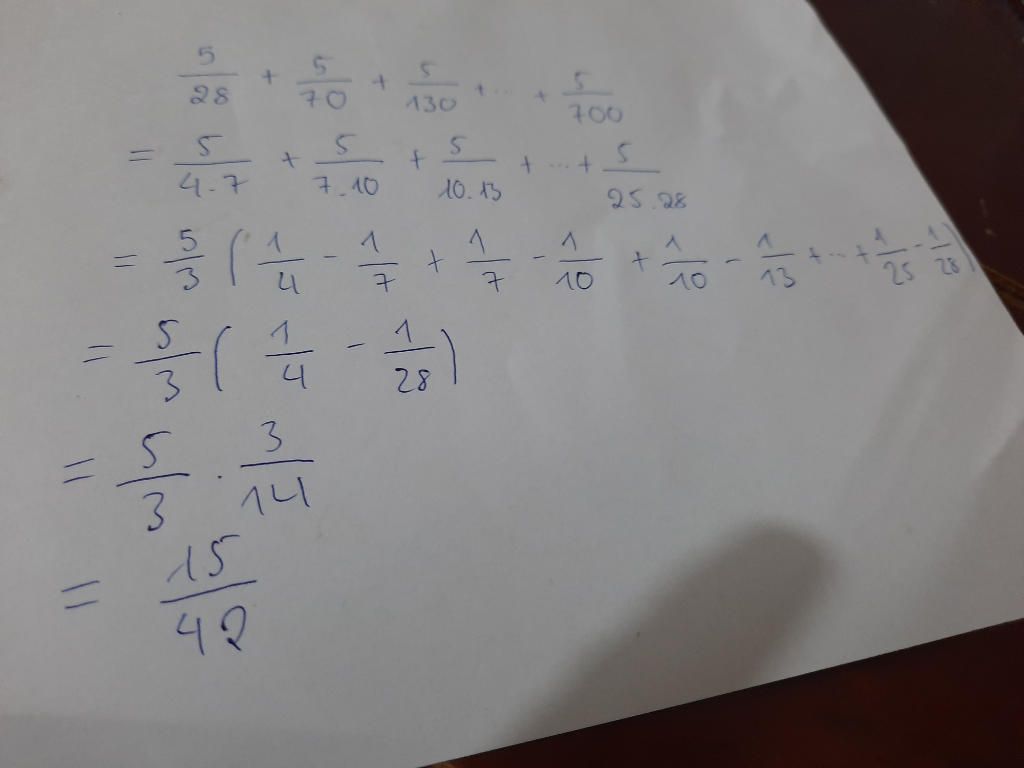 5/28 + 5/70 + 5/130 + ... + 5/700
= 5/4.7 + 5/7.10 + 5/10.13 + ... + 5/25.28
= 5/3 ( 1/4 - 1/7 + 1/7 - 1/10 + 1/10 - 1/13 + ... + 1/25 - 1/28 )
= 5/3 ( 1/4 - 1/28 )
= 5/3 . 3/14
= 15/42